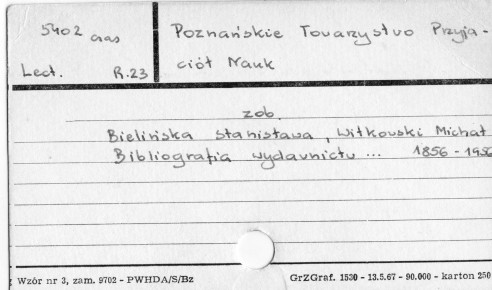 5402 czas
Lect. R.23
Poznańskie Towarzystwo Przyja-
ciół Nauk
zob.
Bielińska Stanisława, Witkowski Michał
Bibliografia wydawnictw ... 1856 - 1956
Wzór nr 3, zam. 9702 - PWHDA/S/Bz
GrZGraf. 1530 - 13.5.67 - 90.000 - karton 250